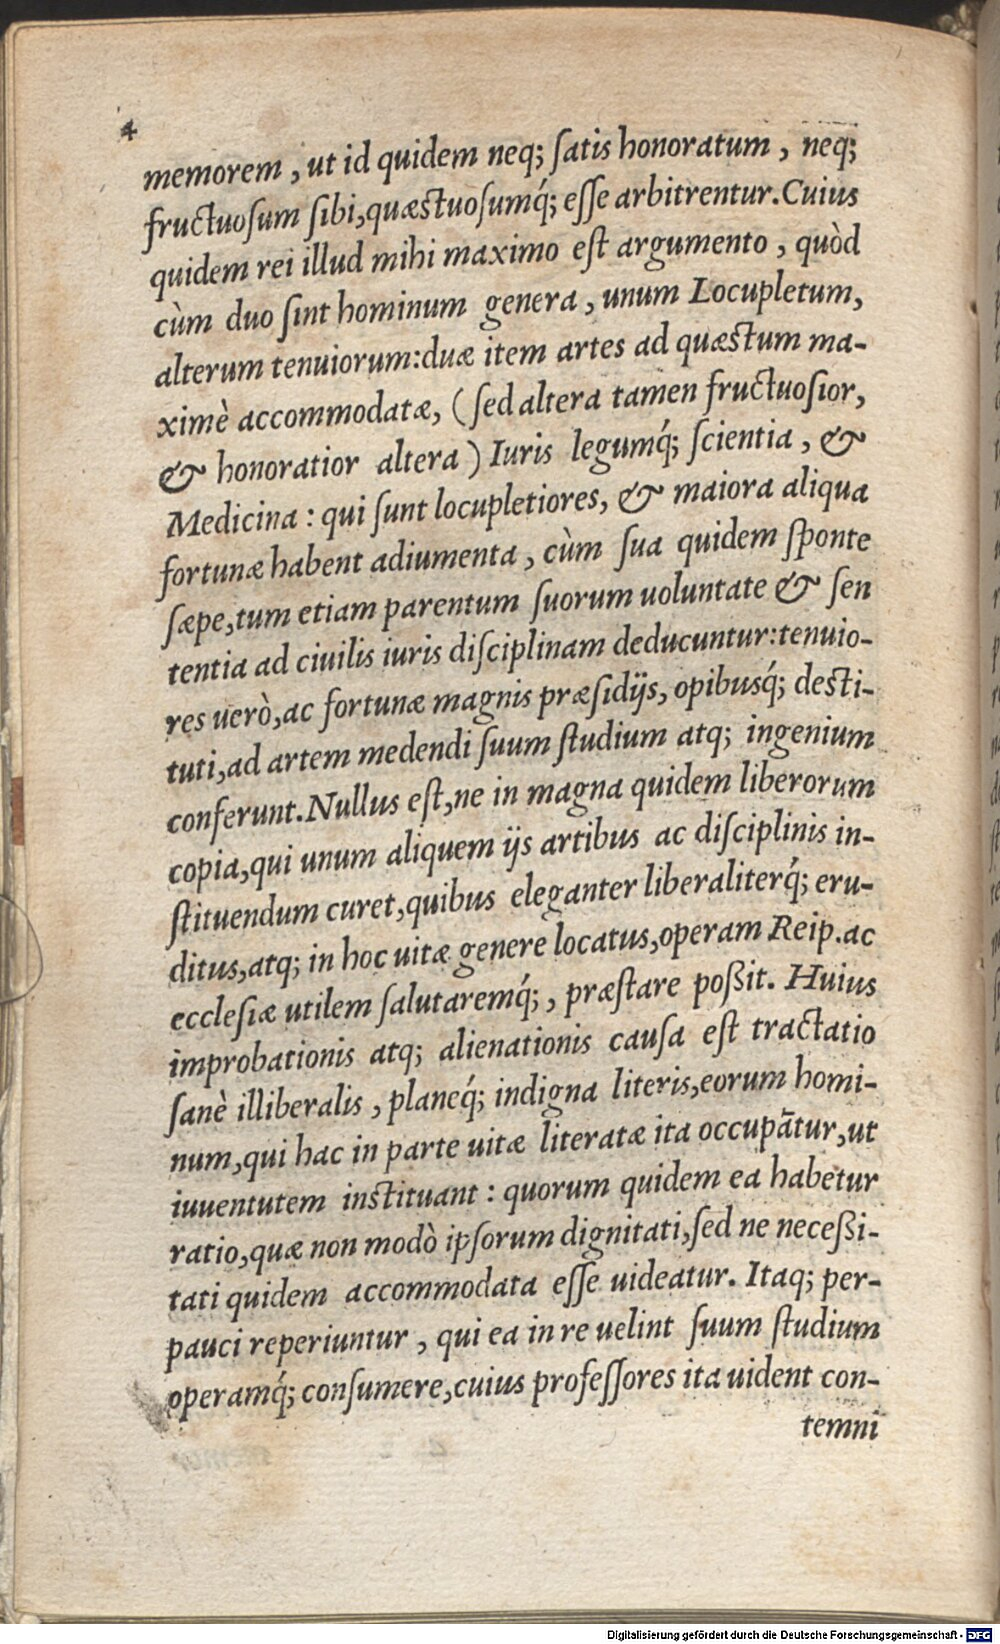 4
memorem, ut id quidem neq; ſatis honoratum, neq;
fructuoſum ſibi, quæstuoſumq́; eſſe arbitrentur. Cuius
quidem rei illud mihi maximo eſt argumento, quòd
cùm duo ſint hominum genera, unum Locupletum,
alterum tenuiorum: duæ item artes ad quæstum ma-
ximè accommodatæ, (ſed altera tamen fructuoſior,
& honoratior altera) Iuris legumq́; ſcientia, &
Medicina: qui ſunt locupletiores, & maiora aliqua
fortunæ habent adiumenta, cùm ſua quidem ſponte
ſæpe, tum etiam parentum ſuorum uoluntate & ſen
tentia ad ciuilis iuris diſciplinam deducuntur: tenuio-
res uerò, ac fortunæ magnis præſidijs, opibusq́; desti-
tuti, ad artem medendi ſuum ſtudium atq; ingenium
conferunt. Nullus eſt, ne in magna quidem liberorum
copia, qui unum aliquem ijs artibus ac diſciplinis in-
ſtituendum curet, quibus eleganter liberaliterq́; eru-
ditus, atq; in hoc uitæ genere locatus, operam Reip. ac
eccleſiæ utilem ſalutaremq́;, præſtare poßit. Huius
improbationis atq; alienationis cauſa eſt tractatio
ſanè illiberalis, planeq́; indigna literis, eorum homi-
num, qui hac in parte uitæ literatæ ita occupātur, ut
iuuentutem instituant: quorum quidem ea habetur
ratio, quæ non modò ipſorum dignitati, ſed ne neceßi-
tati quidem accommodata eſſe uideatur. Itaq; per-
pauci reperiuntur, qui ea in re uelint ſuum ſtudium
operamq́; conſumere, cuius profeſſores ita uident con-
temni
Digitalisierung gefördert durch die Deutsche Forschungsgemeinschaft - DFG